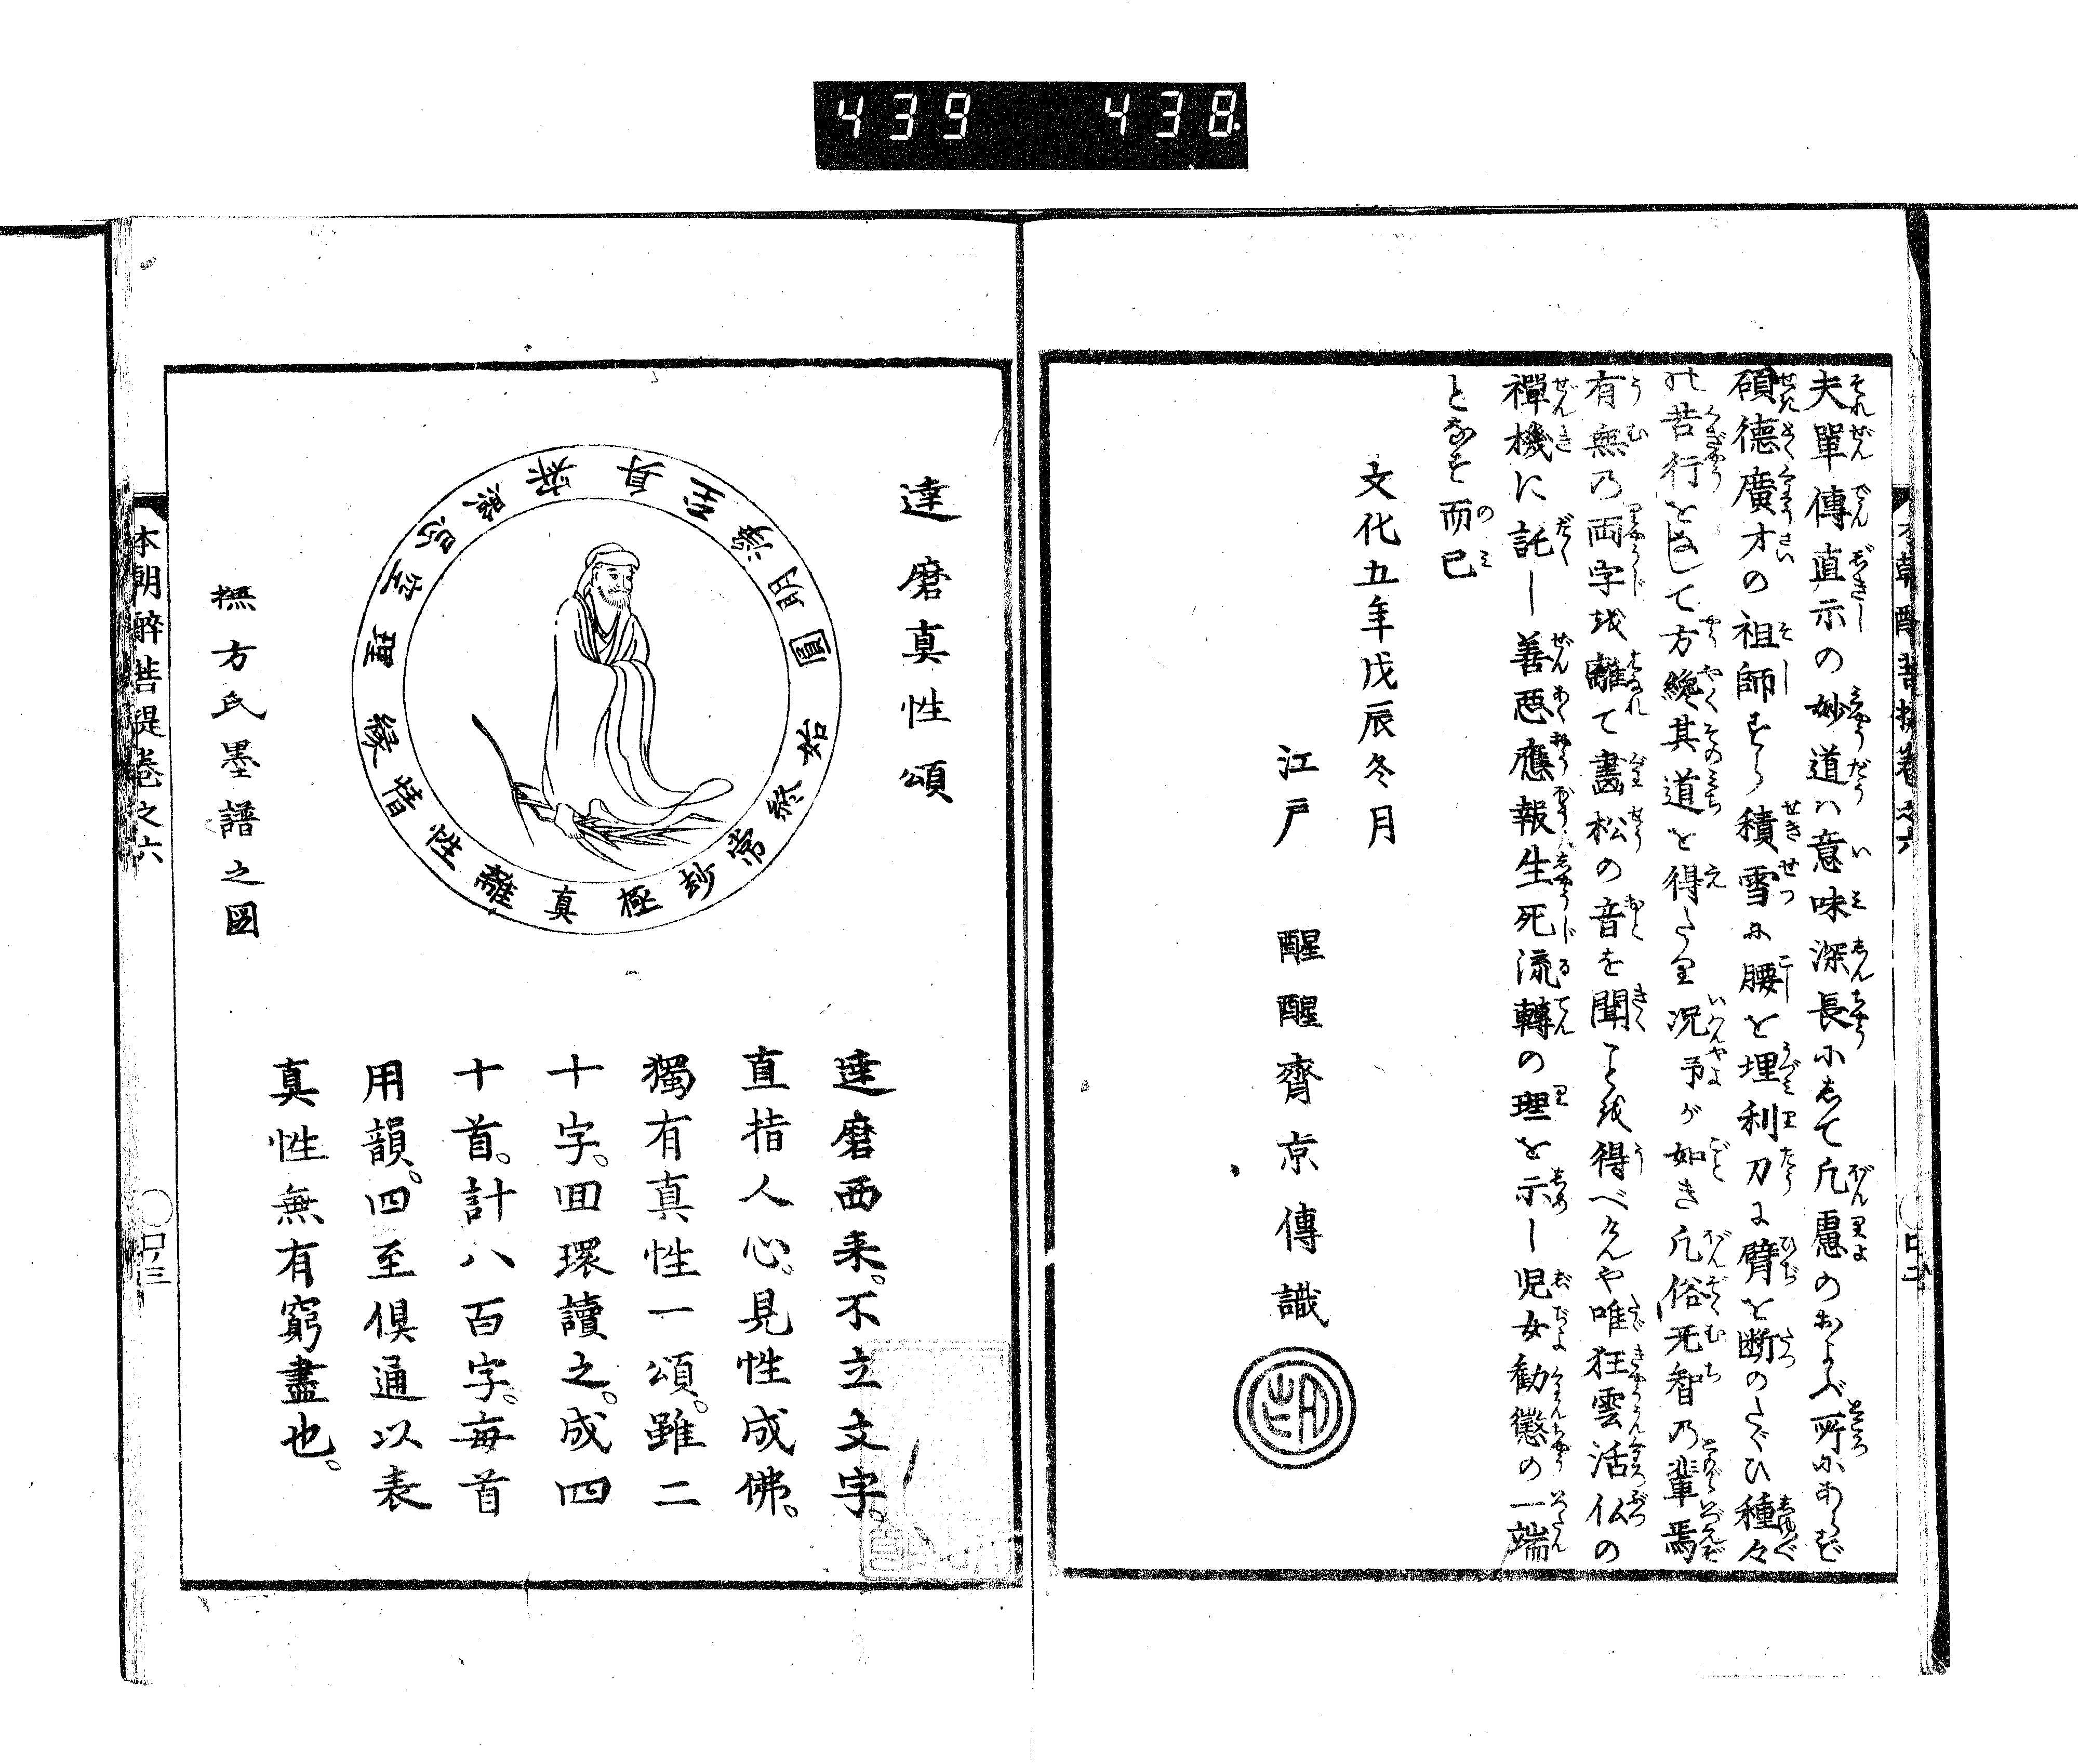 439 438
夫單傳直示の妙道ハ意味深長にして凡慮のおよぶ所にあらず
碩德廣才の祖師すら積雪に腰を埋利刀に臂を断のたぐひ種々
の苦行をなして方纔其道を得たり況予が如き凡俗无智の輩焉
有無の両字を離て畵松の音を聞ことを得べけんや唯狂雲活仏の
禪機に託し善悪應報生死流轉の理を示し児女勧懲の一端
となす而已
文化五年戊辰冬月
江戸 醒醒齋京傳識
本朝酔菩提巻之六
口二
達磨真性頌
真極妙常終始圓明淨
至身寂
照
忍空理緣情性離
達磨西来。不立文字。
直指人心。見性成佛。
獨有真性一頌。雖二
十字。回環讀之。成四
十首。計八百字。毎首
用韻。四至俱通以表
真性無有窮盡也。
撫方氏墨譜之圖
本朝酔菩提巻之六
口三